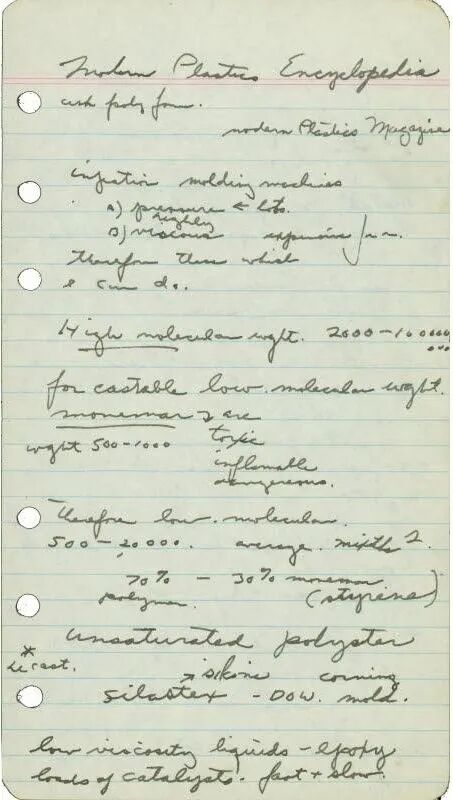 Modern Plastics Encyclopedia
ask poly form.
modern Plastics Magazine
injection molding machines
a) pressure ← lots.
highly
b) viscous expensive
therefore those which
I can do.
High molecular wght. 2000-100000
for castable low. molecular wght.
monemar are
wght 500-1000 toxic
inflamable
dangereous.
Therefore low. molecular.
500-20000. average.
70% - 30% monemar.
polymer. (styrene)
unsaturated polyster
*
cast. silicone corning
silastex - DOW. mold.
low viscosity liquids - epoxy
loads of catalysts. fast + slow.